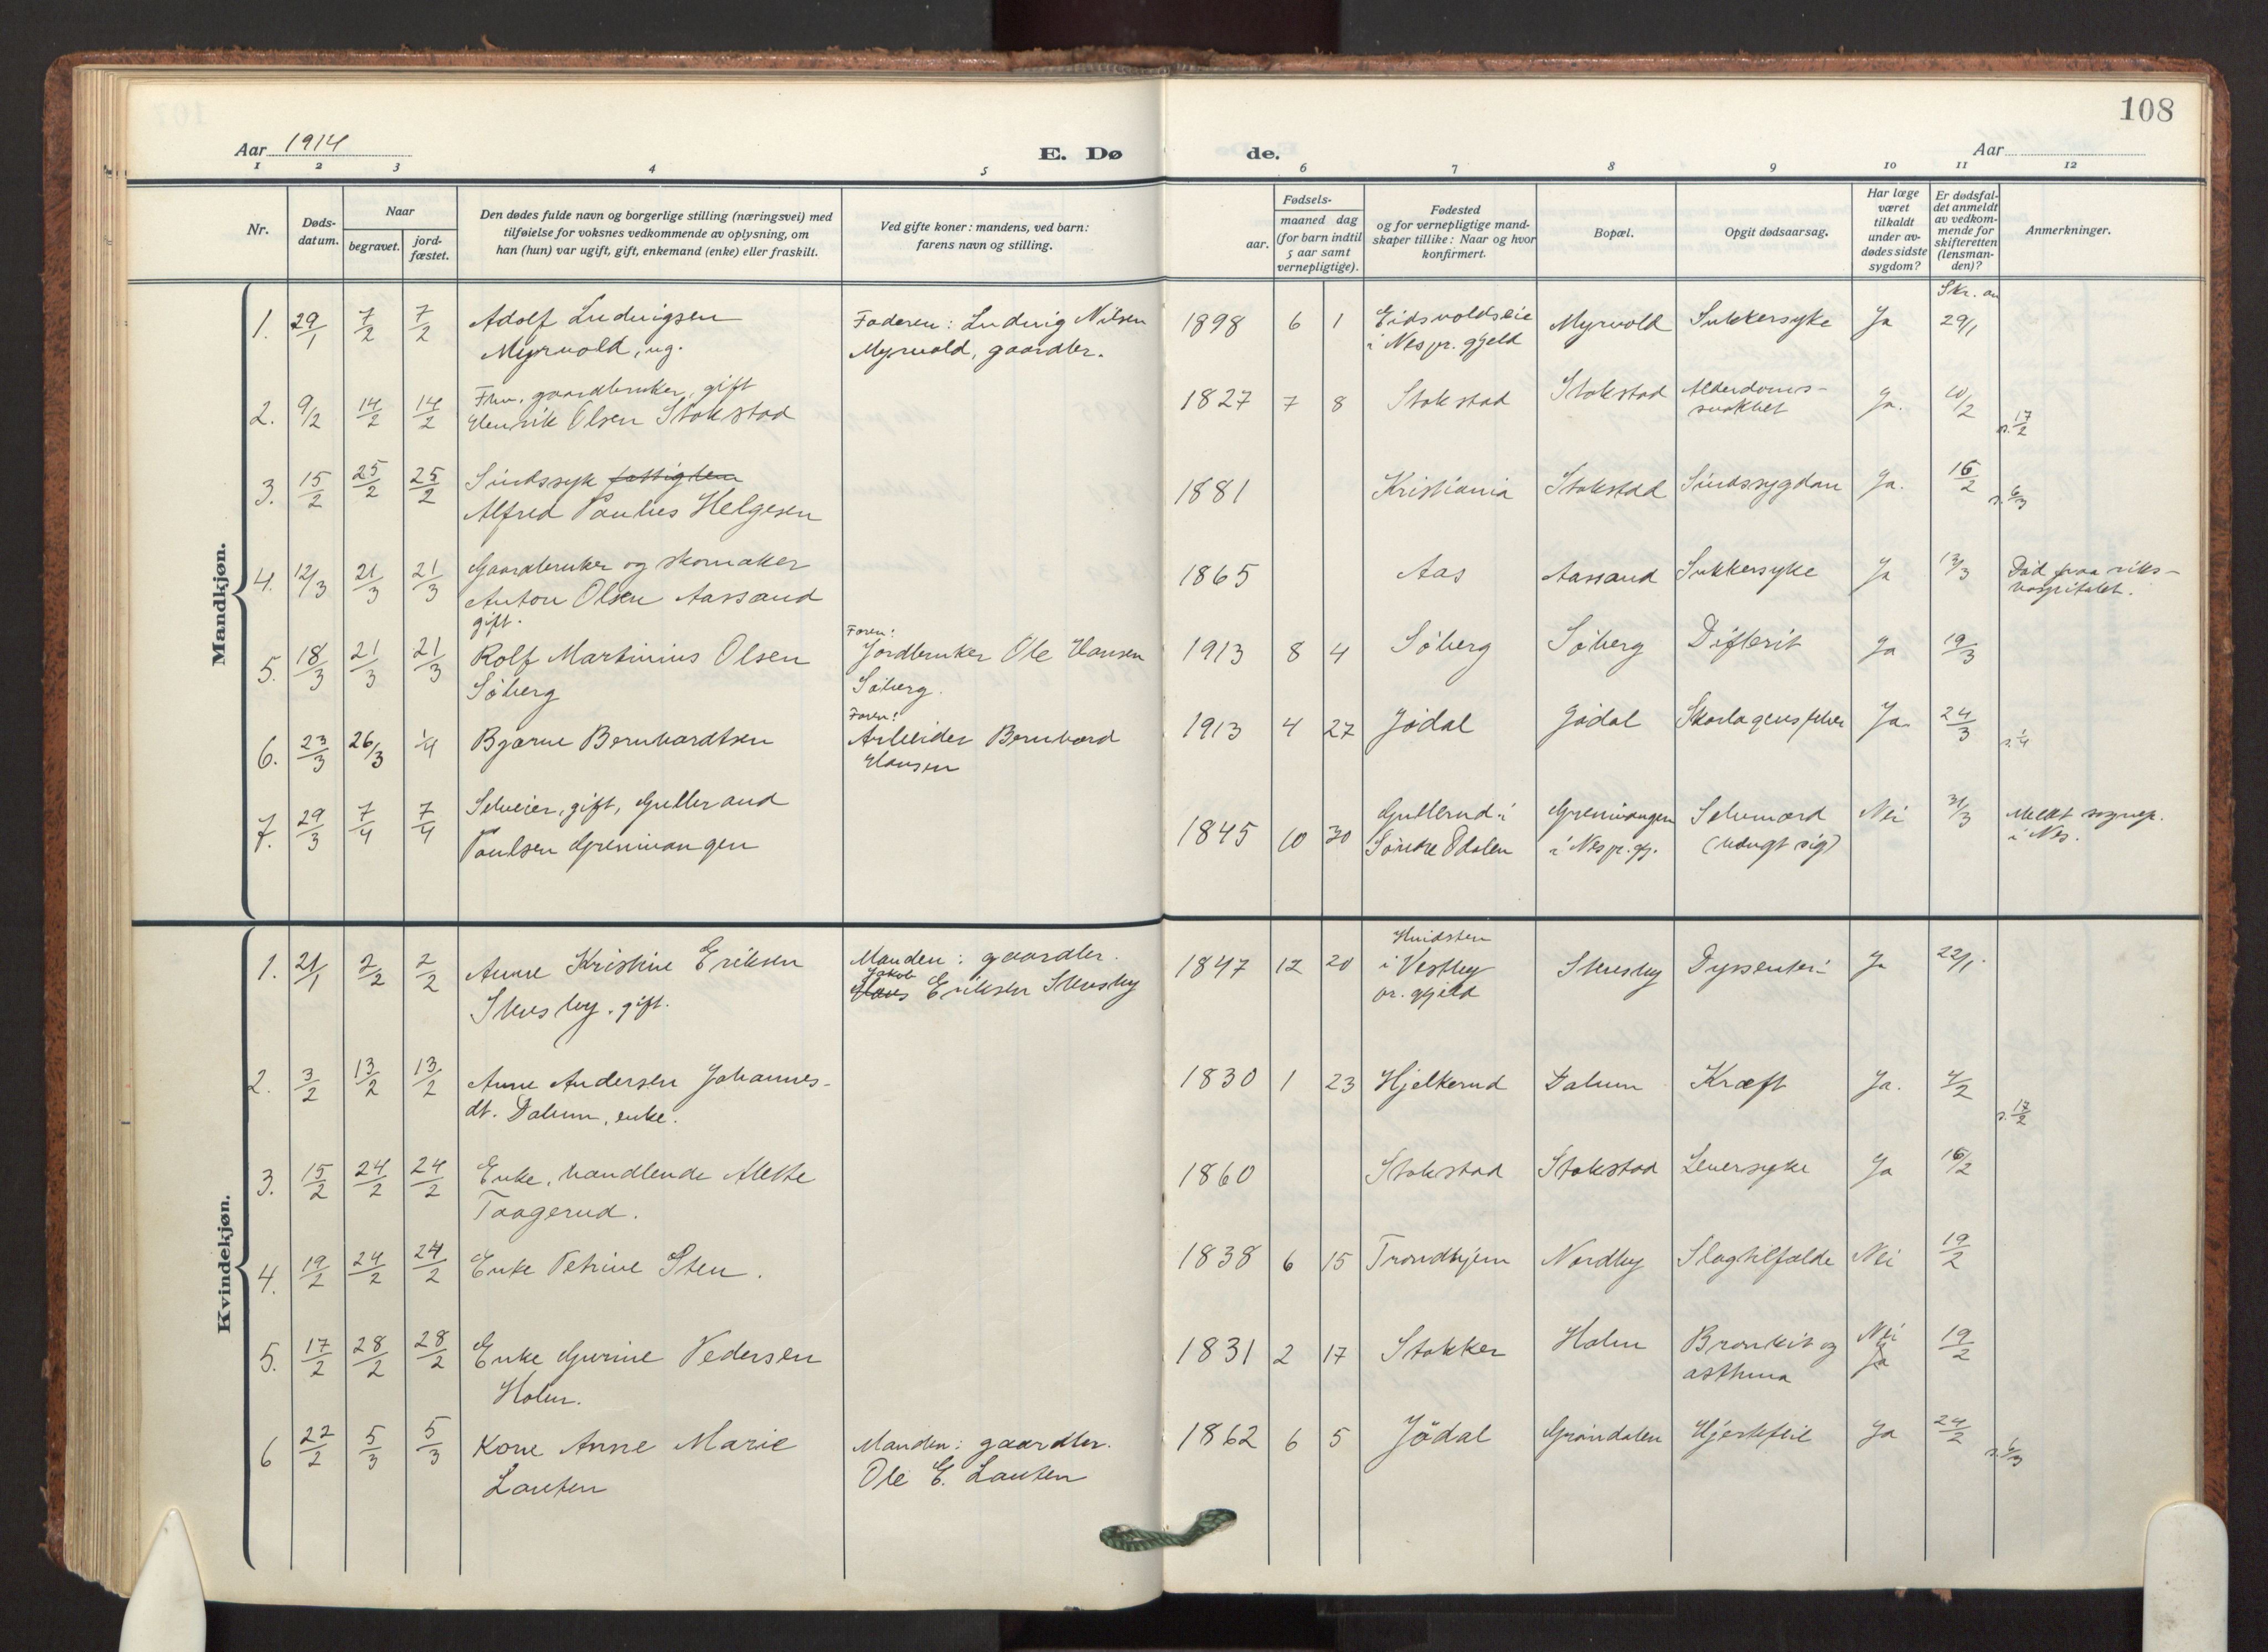 108
Aar 1914
E. Dø
de.
Aar
1 2 3 4 5 6 7 8 9 10 11 12
Nr.
Døds-
datum.
Naar
begravet.
jord-
fæstet.
Den dødes fulde navn og borgerlige stilling (næringsvei) med
tilføielse for voksnes vedkommende av oplysning, om
han (hun) var ugift, gift, enkemand (enke) eller fraskilt.
Ved gifte koner: mandens, ved barn:
farens navn og stilling.
Fødsels-
aar.
maaned dag
(for barn indtil
5 aar samt
vernepligtige).
Fødested
og for vernepligtige mand-
skaper tillike: Naar og hvor
konfirmert.
Bopæl.
Opgit dødsaarsag.
Har læge
været
tilkaldt
under av-
dødes sidste
sygdom?
Er dødsfal-
det anmeldt
av vedkom-
mende for
skifteretten
(lensman-
den)?
Anmerkninger.
Mandkjøn.
1. 29/1 7/2 7/2 Adolf Ludvigsen
Myrvold, ug.
Faderen: Ludvig Nilsen
Myrvold, gaardbr.
1898 6 1 Eidsvoldseie
i Nes pr. gjeld
Myrvold Sukkersyke Ja
29/1
2. 9/2 14/2 14/2 Fhv. gaardbruker, gift
Henrik Olsen Stokstad
1827 7 8 Stokstad Stokstad Alderdoms-
svakhet
Ja. 10/2 s. 17/2
3. 15/2 25/2 25/2 Sindssyk fattiglem
Alfred Paulus Helgesen
1881 Kristiania Stokstad Sindssygdom Ja. 16/2 s. 6/3
4. 12/3 21/3 21/3 Gaardbruker og skomaker
Anton Olsen Aassand
gift.
1865 Aas Aassand Sukkersyke Ja 13/3 Død paa riks-
hospitalet.
5. 18/3 21/3 21/3 Rolf Martinius Olsen
Søberg
Faren:
Jordbruker Ole Hansen
Søberg.
1913 8 4 Søberg Søberg Difterit Ja 19/3
6. 23/3 26/3 1/4 Bjarne Bernhardtsen
Faren:
Arbeider Bernhard
Hansen
1913 4 27 Jødal Jødal Skarlagensfeber Ja 24/3 s. 1/4
7. 29/3 7/4 7/4 Selveier, gift, Gulbrand
Paulsen Grenivangen
1845 10 30 Gullerud i
Søndre Odalen
Grenivangen
i Nes pr. gj.
Selvmord
(hængt sig)
Nei 31/3 Meldt sognep.
i Nes.
Kvindekjøn.
1. 21/1 2/2 2/2 Anne Kristine Eriksen
Stensby, gift.
Manden: gaardbr.
Jakob
Hans Eriksen Stensby
1847 12 20 Hvidsten
i Vestby
pr. gjeld
Stensby Dyssenteri Ja 22/1
2. 3/2 13/2 13/2 Anne Andersen Johannes-
dt. Dalum, enke.
1830 1 23 Hjelkerud Dalum Kræft Ja. 4/2 s. 17/2
3. 15/2 24/2 24/2 Enke, handlende Alette
Taagerud.
1860 Stokstad Stokstad Leversyke Ja 16/2
4. 19/2 24/2 24/2 Enke Petrine Sten.
1838 6 15 Trondhjem Nordby Slagtilfælde Nei 19/2
5. 17/2 28/2 28/2 Enke Gurine Pedersen
Holm.
1831 2 17 Stokker Holm Bronkit og
asthma
Nei
Ja
19/2
6 22/2 5/3 5/3 Kone Anne Marie
Lauten
Manden: gaardbr.
Ole E. Lauten
1862 6 5 Jødal Grøndalen Hjertefeil Ja 24/2 s. 6/3